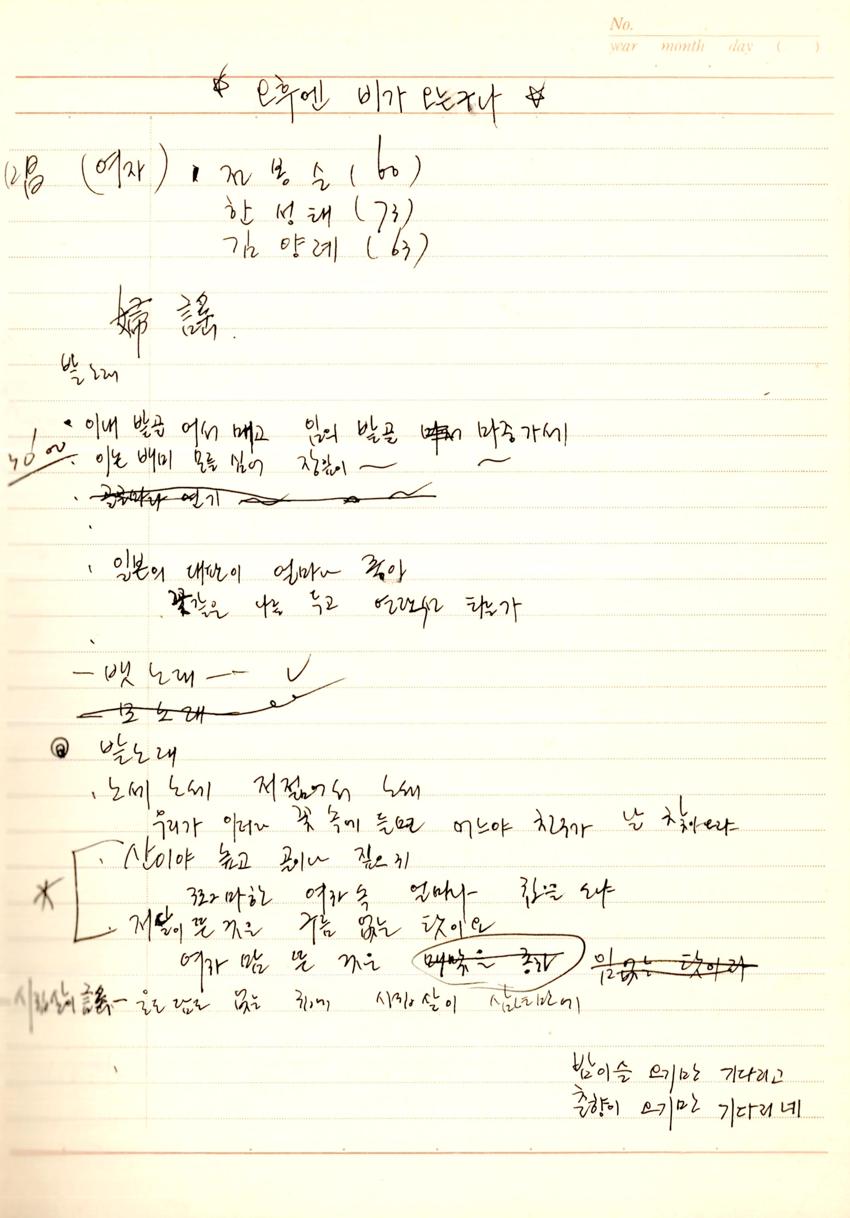 No.
year month day ( )
☆ 오후엔 비가 오는거나 ☆
唱 (여자) · 전봉순 (60)
한성태 (73)
김양례 (63)
婦謠.
밭노래
· 이내 밭골 어서 매고 임의 밭골 마중가세
· 이논 배미 모를 심어 장잎이 ~ ~
· 골골마다 연기
· 일본의 대판이 얼마나 좋아
꽃같은 나를 두고 연락선 타는가
- 뱃노래 - ✓
모노래
밭노래
· 노세 노세 저젊어서 노세
우리가 이러다 꽃 속에 들면 어느야 친구가 날 찾아오랴
· 산이야 높고 골이나 깊으지
조그마한 여자 속 얼마나 깊을소냐
· 저달이 뜬 것은 구름 없는 탓이요
여자 맘 뜬 것은 임없는 탓이라
시집살이 謠 - 울도 담도 없는 집에 시집살이 삼년만에
밤이슬 오기만 기다리고
춘향이 오기만 기다리네